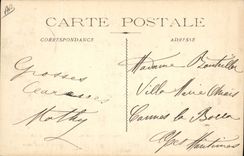 CARTE POSTALE
CORRESPONDANCE
ADRESSE
Grosses
Caresses
Mathy
Madame
Villa Marie
Cannes la Bocca
Alpes Maritimes